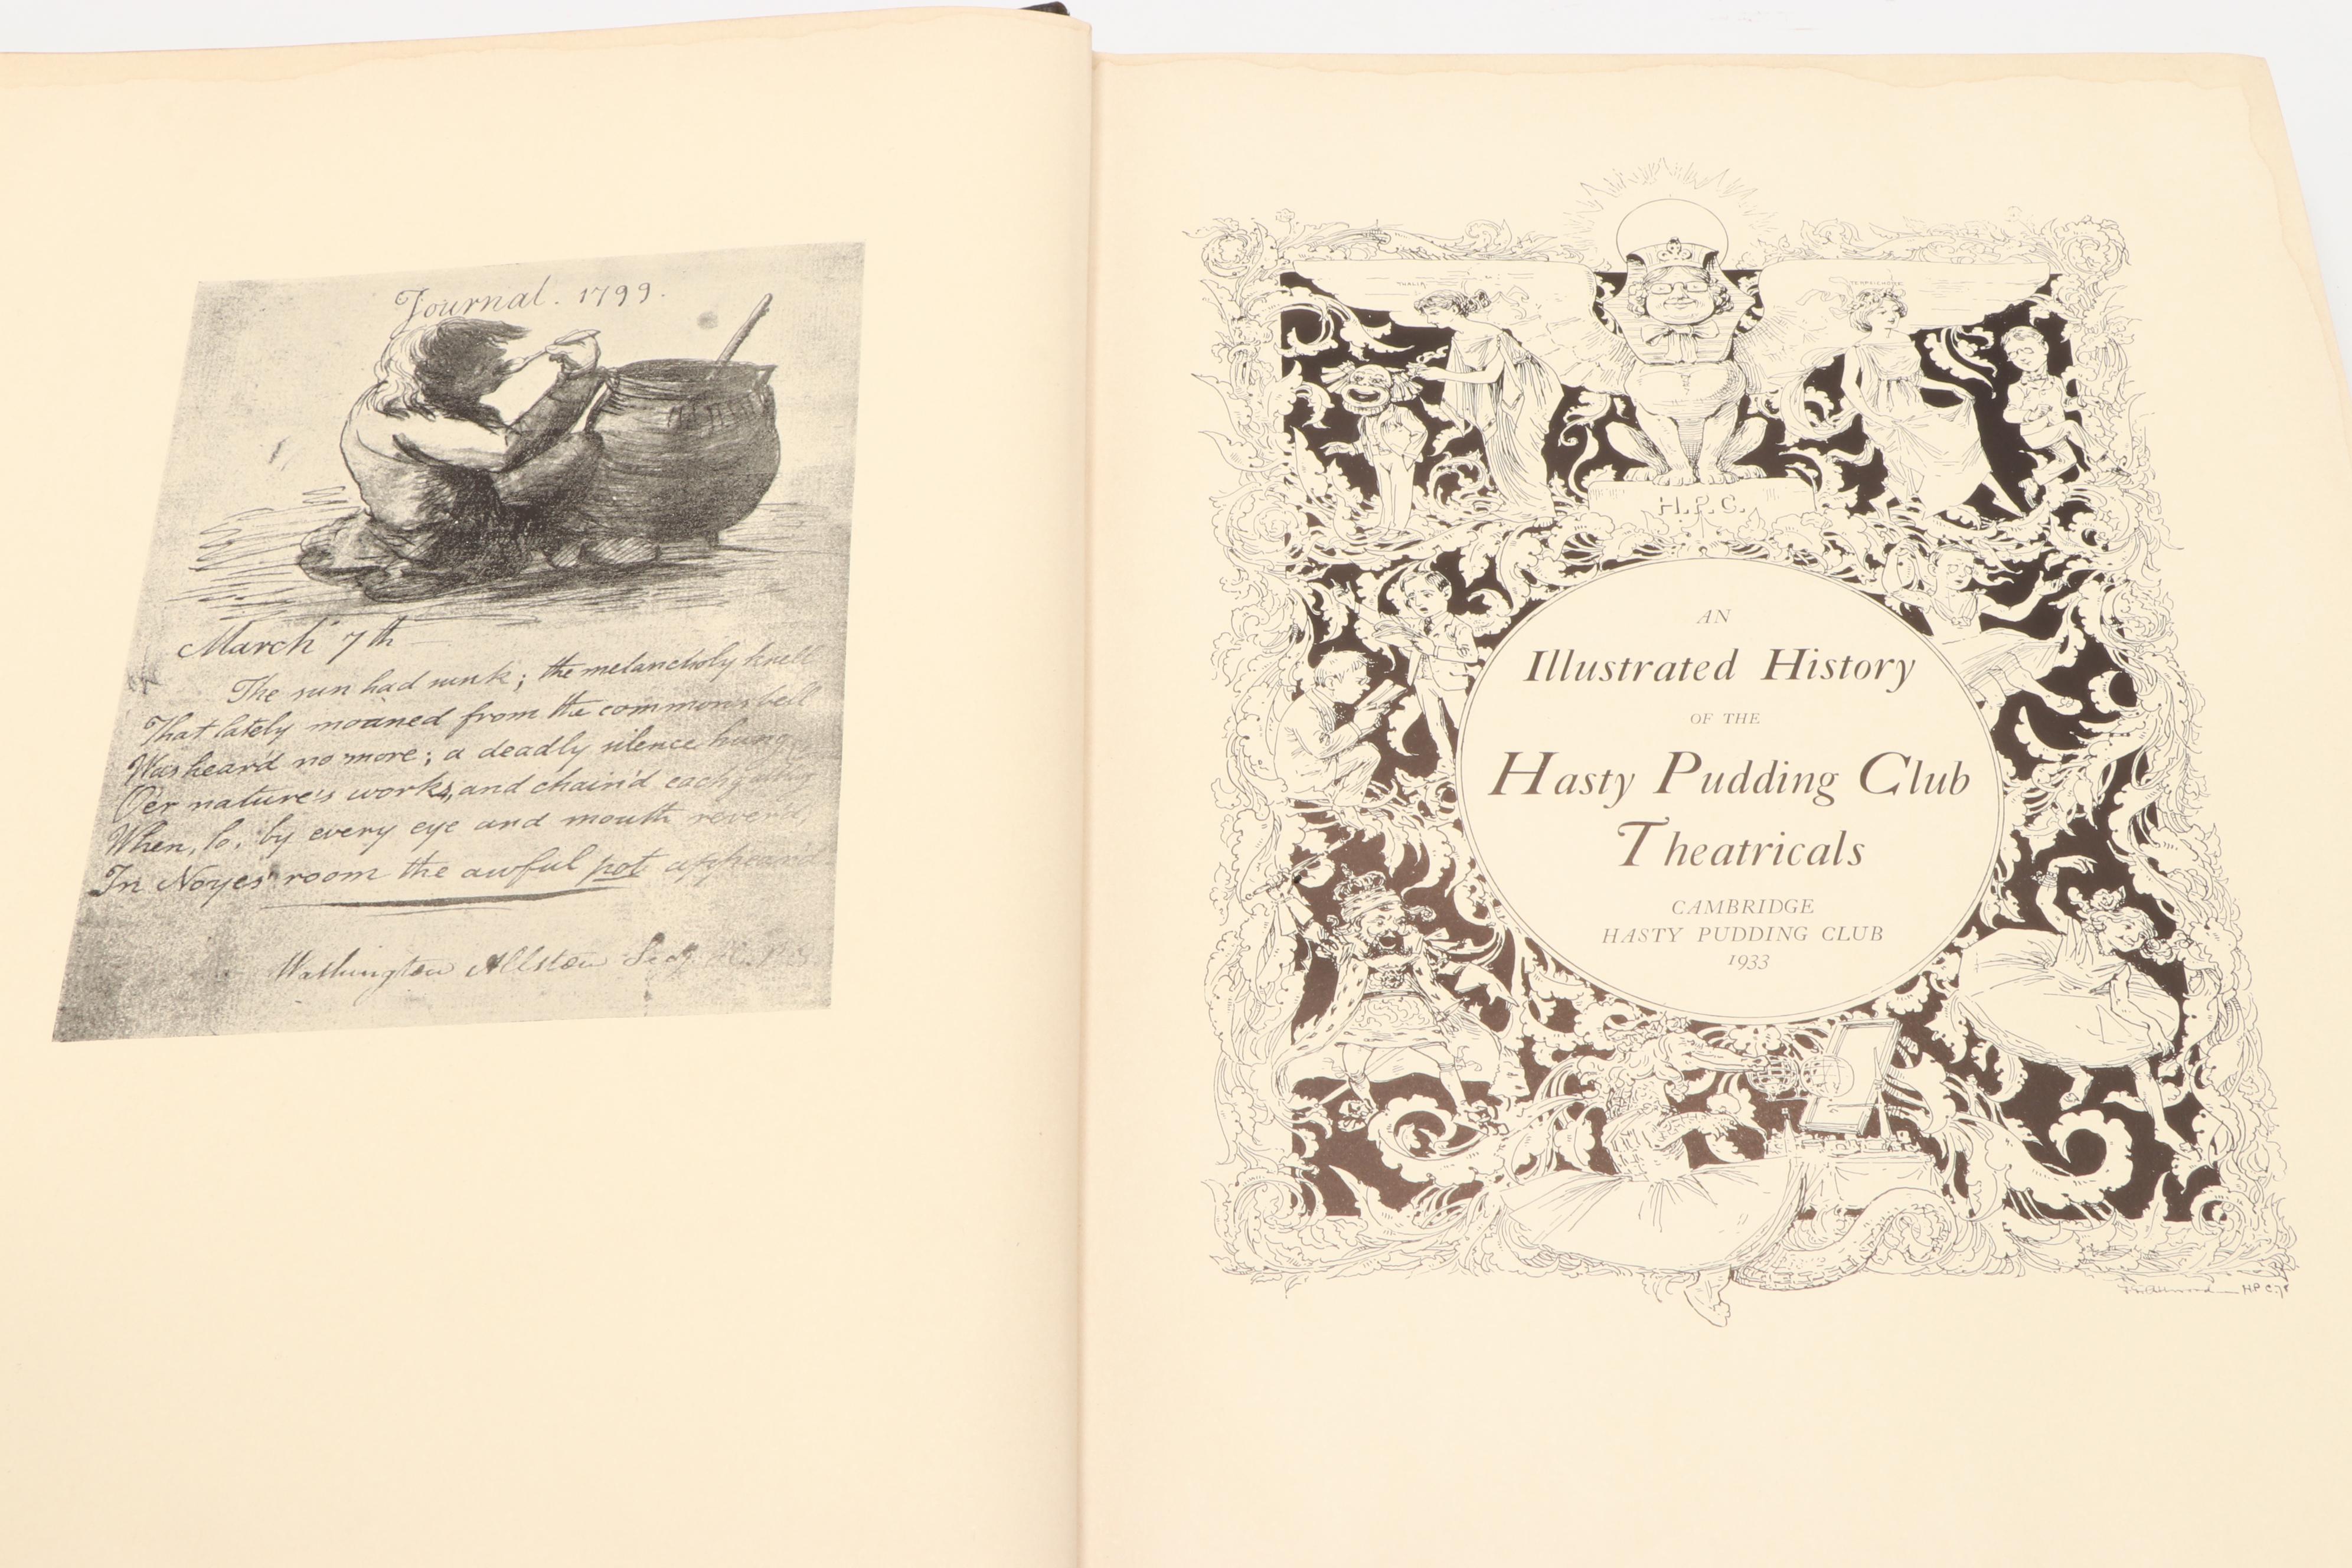 Journal. 1799.
March 7th
The sun had sunk; the melancholy knell
That lately moaned from the common's bell
Was heard no more; a deadly silence hung
O'er nature's works, and chain'd each
When, lo, by every eye and mouth rever'd,
In Noyes' room the awful pot appear'd
Washington Allston Secy H.P.
THALIA
TERPSICHORE
H.P.C.
AN
Illustrated History
OF THE
Hasty Pudding Club
Theatricals
CAMBRIDGE
HASTY PUDDING CLUB
1933
Attwood H P C